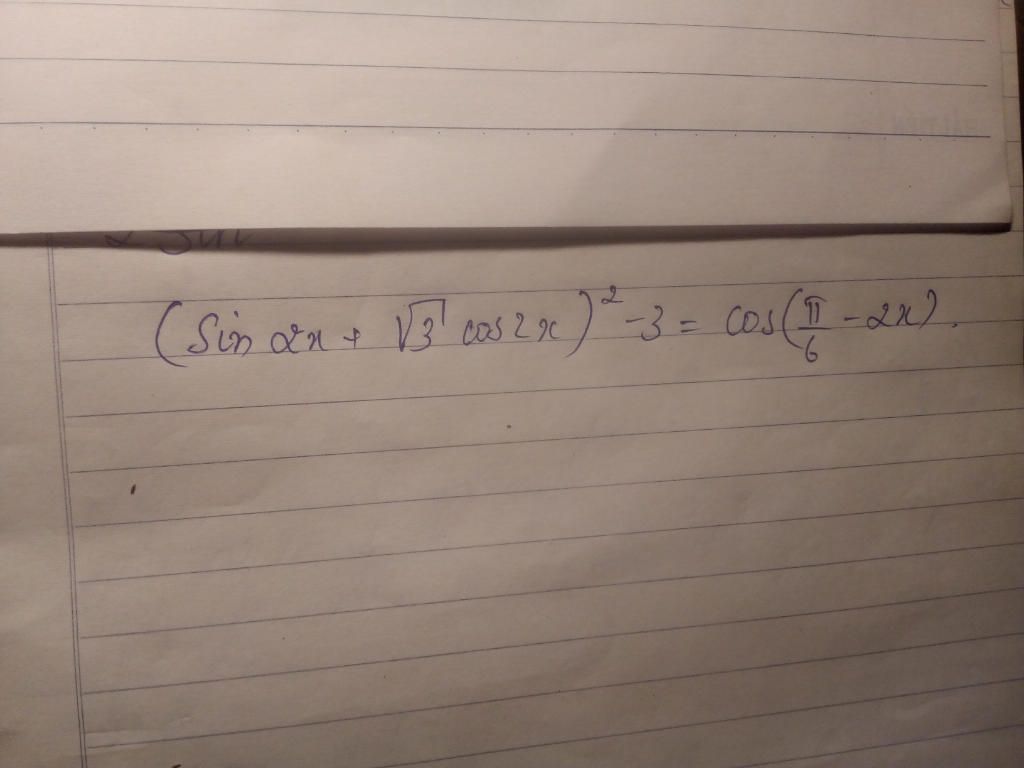 (Sin 2x + √3 cos 2x)² - 3 = cos(π/6 - 2x).